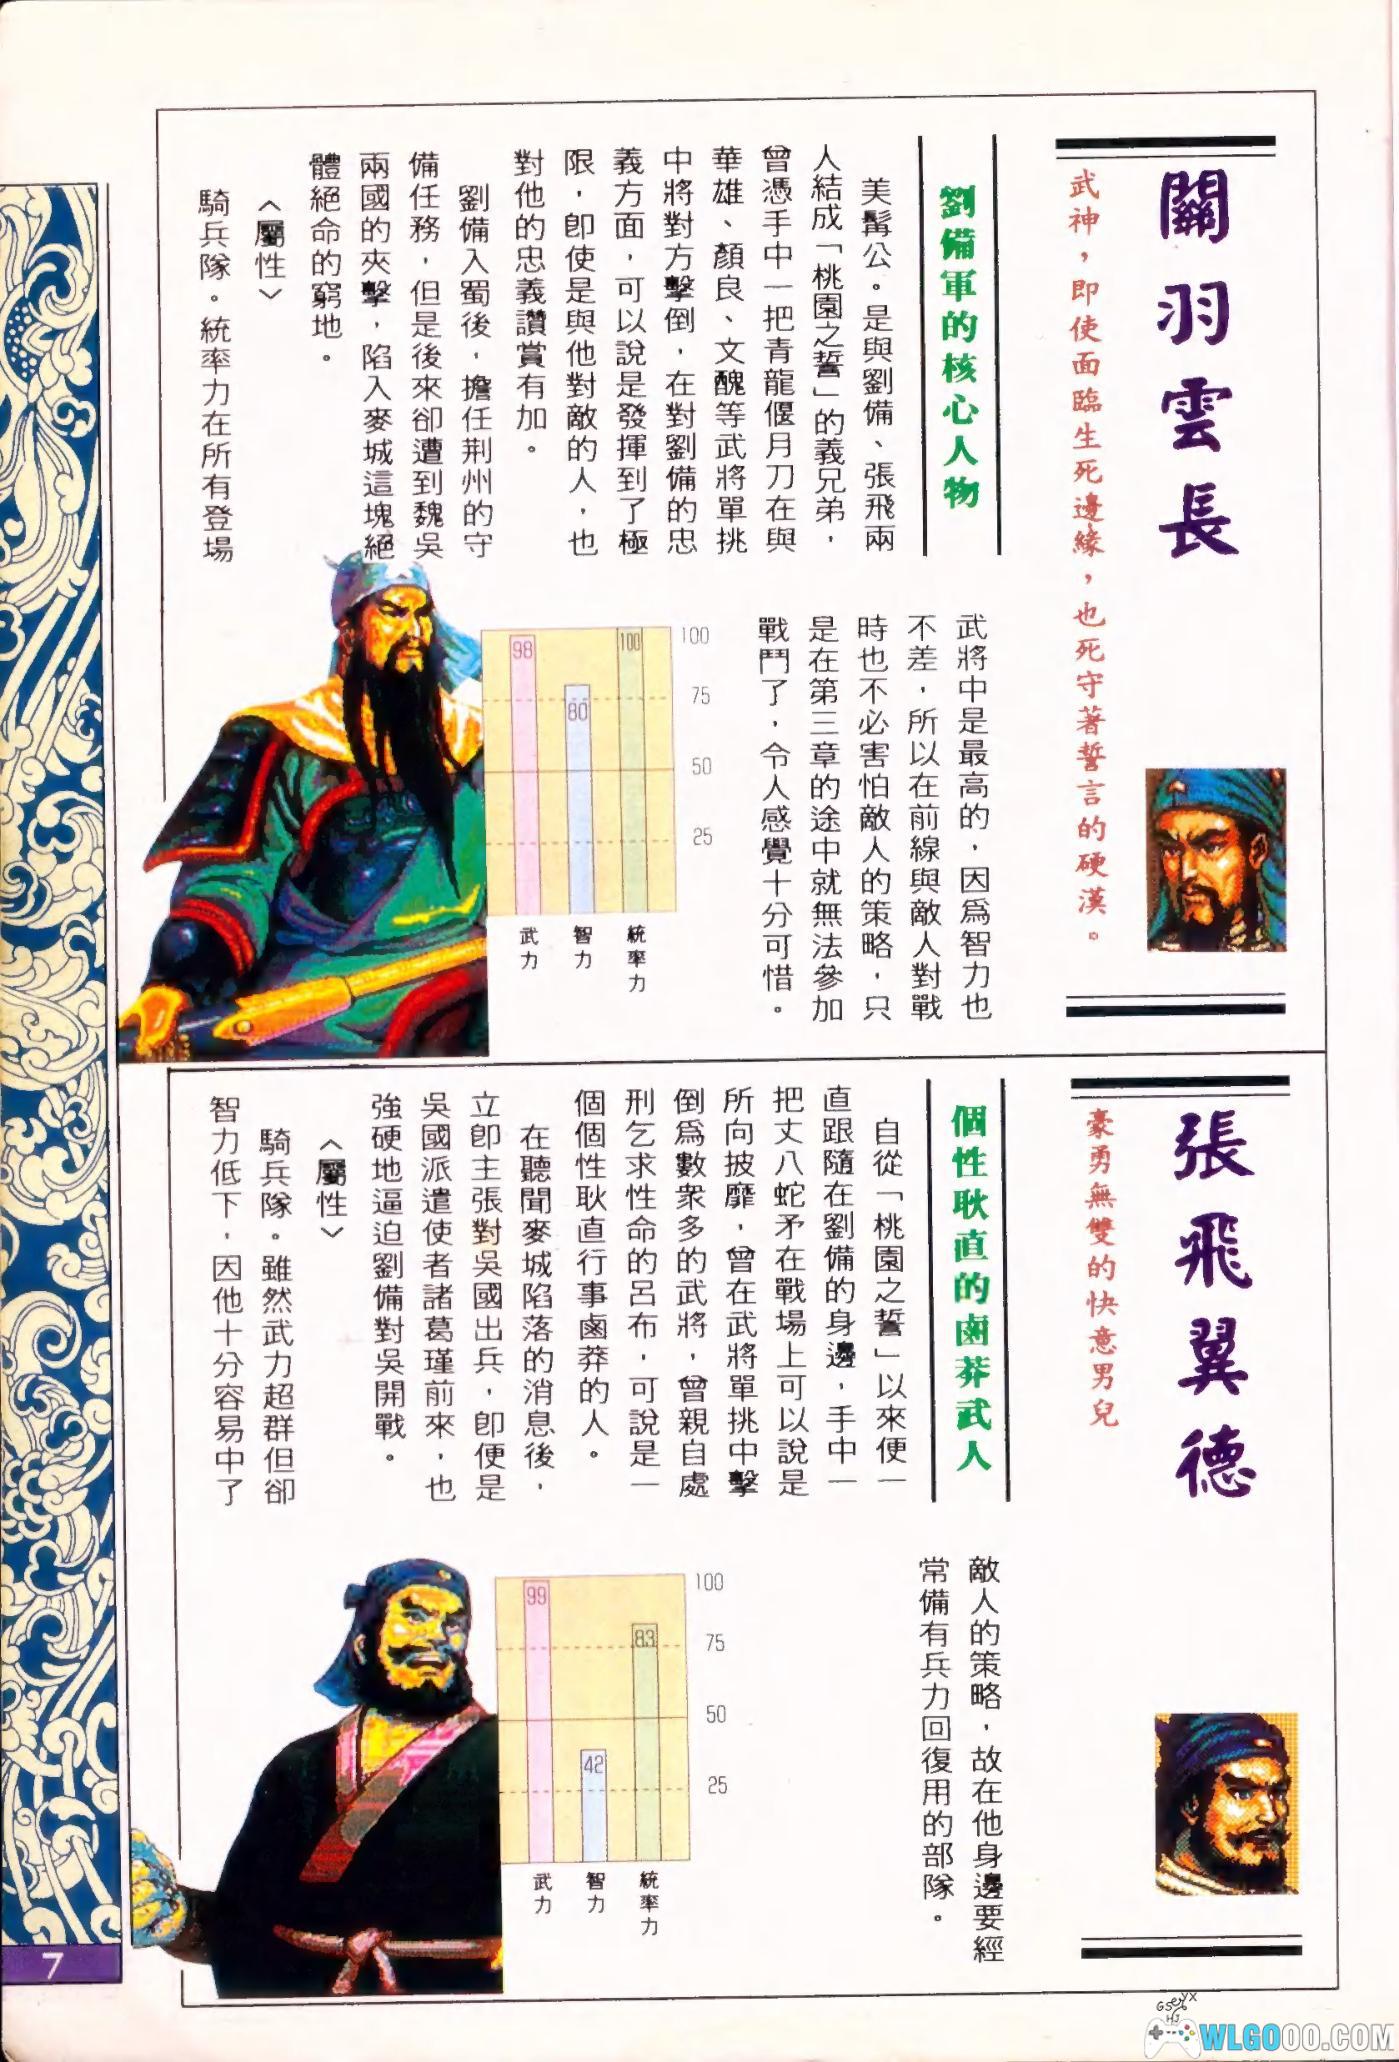 關羽雲長
武神，即使面臨生死邊緣，也死守著誓言的硬漢。
劉備軍的核心人物
美髯公。是與劉備、張飛兩
人結成「桃園之誓」的義兄弟，
曾憑手中一把青龍偃月刀在與
華雄、顏良、文醜等武將單挑
中將對方擊倒，在對劉備的忠
義方面，可以說是發揮到了極
限，即使是與他對敵的人，也
對他的忠義讚賞有加。
劉備入蜀後，擔任荆州的守
備任務，但是後來卻遭到魏吳
兩國的夾擊，陷入麥城這塊絕
體絕命的窮地。
〈屬性〉
騎兵隊。統率力在所有登場
武將中是最高的，因爲智力也
不差，所以在前線與敵人對戰
時也不必害怕敵人的策略，只
是在第三章的途中就無法參加
戰鬥了，令人感覺十分可惜。
100
75
50
25
98
80
100
武力
智力
統率力
張飛翼德
豪勇無雙的快意男兒
個性耿直的鹵莽武人
自從「桃園之誓」以來便一
直跟隨在劉備的身邊，手中一
把丈八蛇矛在戰場上可以說是
所向披靡，曾在武將單挑中擊
倒爲數衆多的武將，曾親自處
刑乞求性命的呂布，可說是一
個個性耿直行事鹵莽的人。
在聽聞麥城陷落的消息後，
立即主張對吳國出兵，即便是
吳國派遣使者諸葛瑾前來，也
強硬地逼迫劉備對吳開戰。
〈屬性〉
騎兵隊。雖然武力超群但卻
智力低下，因他十分容易中了
敵人的策略，故在他身邊要經
常備有兵力回復用的部隊。
100
75
50
25
99
42
83
武力
智力
統率力
7
WLGOOO.COM